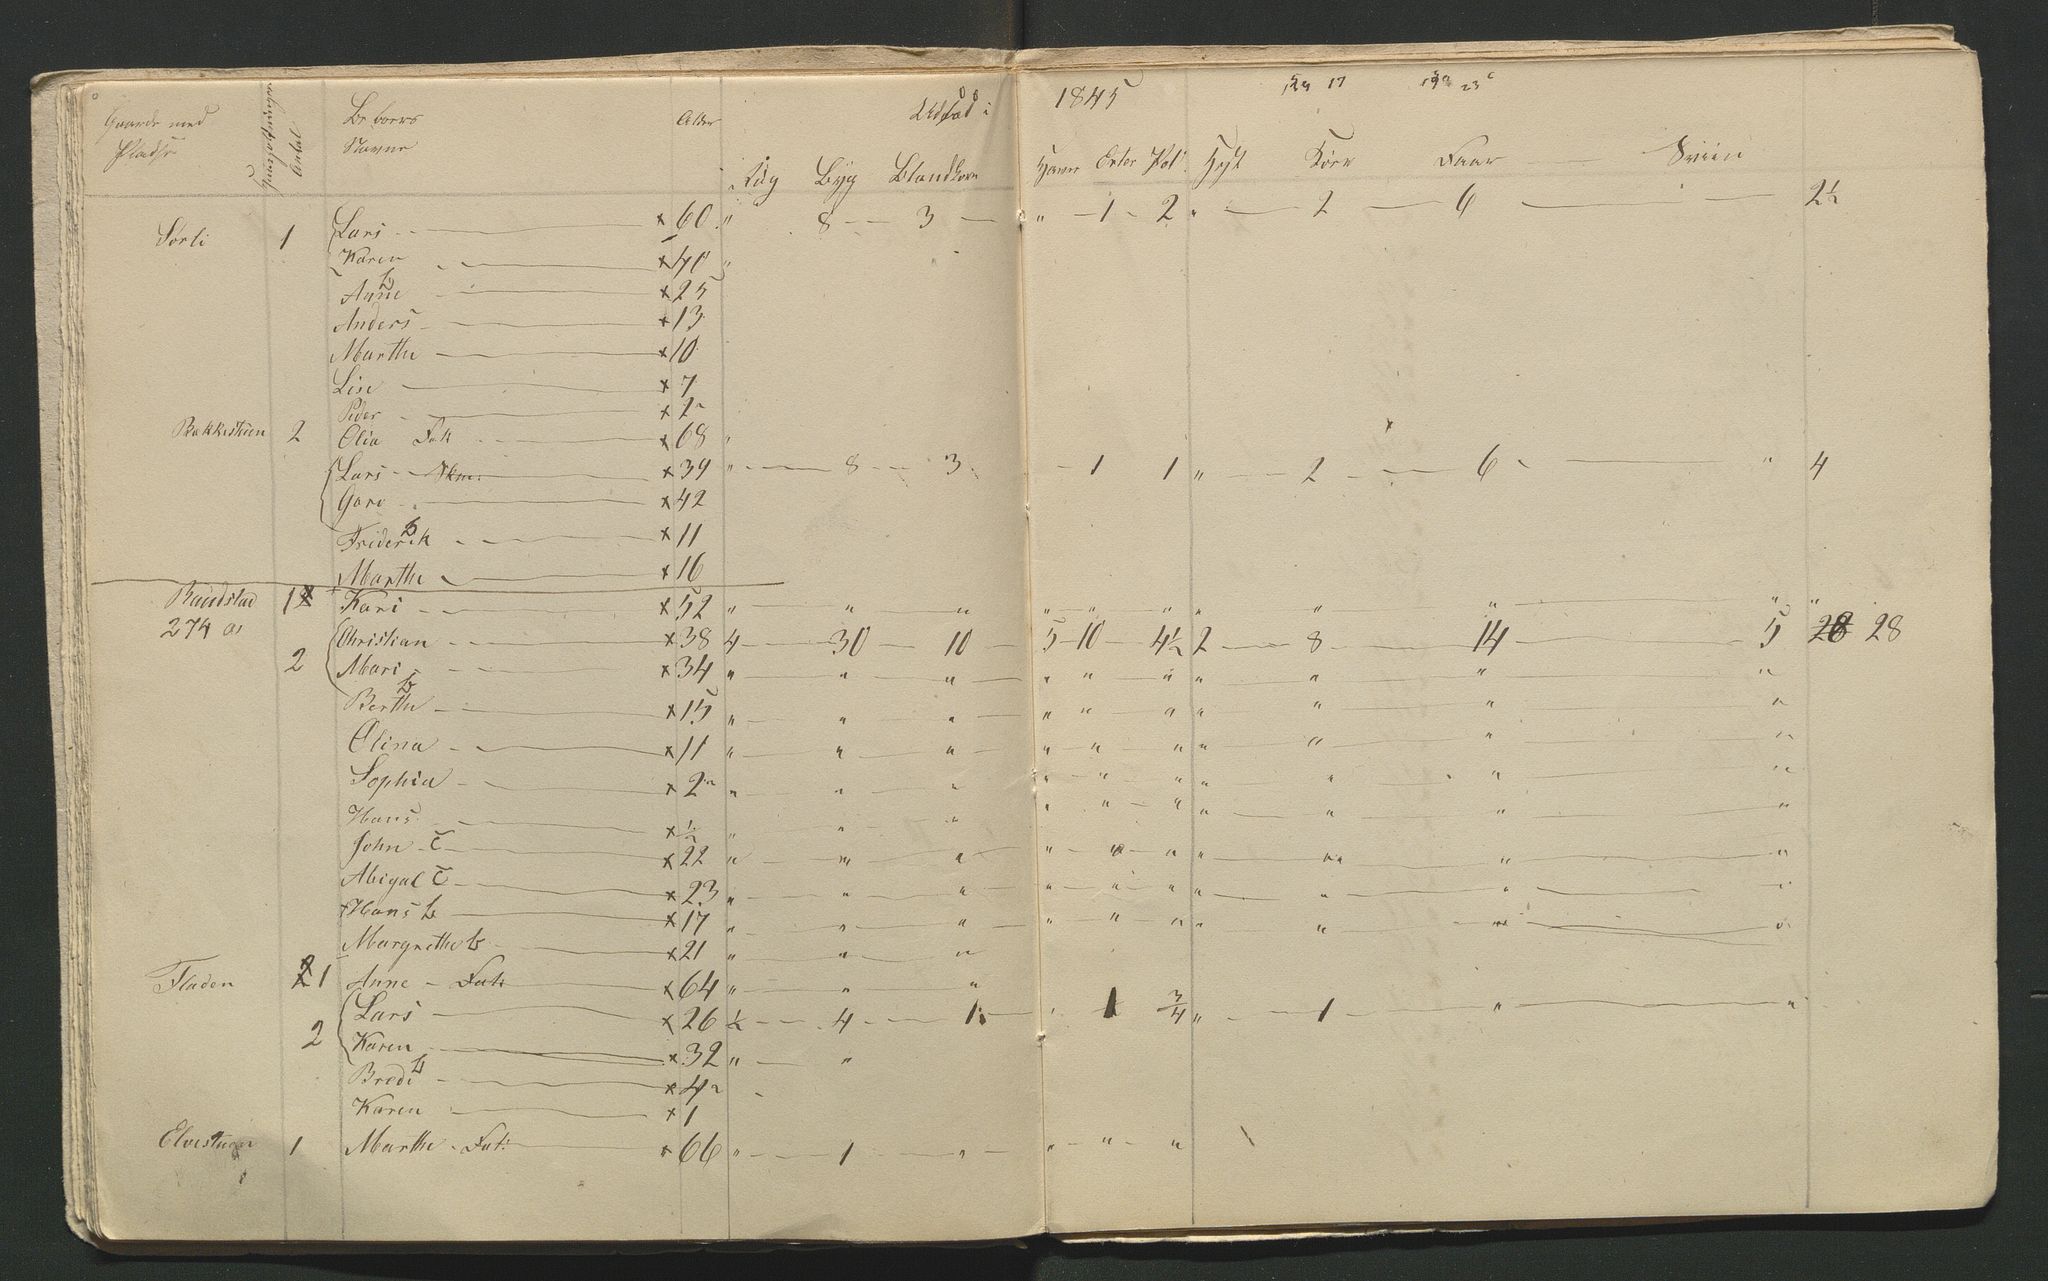 Gaarde med Pladse Huusholdninger Antal Beboers Navne Alder Udsæd i 1845
Rug Byg Blandkorn Havre Erter Pot. Hest Kiør Faar Sviin
Sørli 1 Lars x 60 " 8 3 " 1 2 " 2 6 2½
Karen x 41 "
Anne b x 25
Anders x 13
Marthe x 10
Lise x 7
Peder x 2
Bakkestuen 2 Olia Fat x 68 "
Lars Skm. x 39 " 8 3 1 1 " 2 6 " 4
Goro x 42
Friderik b x 11
Marthe x 16
Raudstad 1 Kari x 52 " " " " " " " " " " "
274 Christian x 38 4 30 10 5 10 4½ 2 8 14 5 28 28
2 Mari x 34 " " " " " " " " " "
Berthe b x 15 " " " " " " " " " "
Olina x 11 " " " " " " " " " "
Sophia x 2 " " " " " " " " " "
Hans x ½ " " " " " " " " " "
John T x 22 " " " " " " " " " "
Abigal T x 23 " " " " " " " " " "
Hans b x 17 " " " " " " " " " "
Margrethe b x 21 " " "
Fladen 1 Anne Fat x 64 " " "
2 Lars x 26 ½ 4 1 " 1 ¾ " 1 " "
Karen x 32 " "
Brede b x 4
Karen x 1
Elvestuen 1 Marthe Fat: x 66 " 1 " " " "